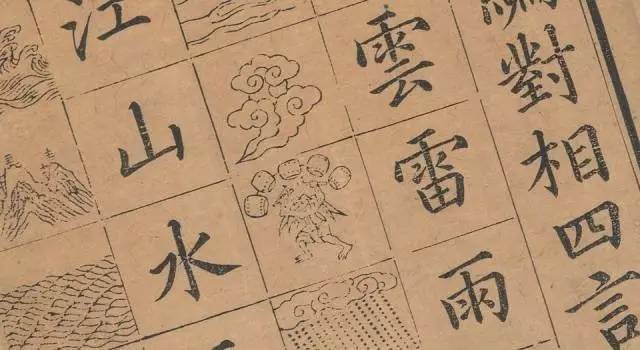 對相四言
雲雷雨
江山水